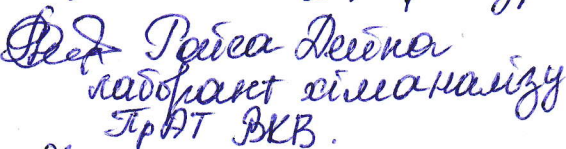 Раїса Дейна
лаборант хіманалізу
ПрАТ ВКВ.